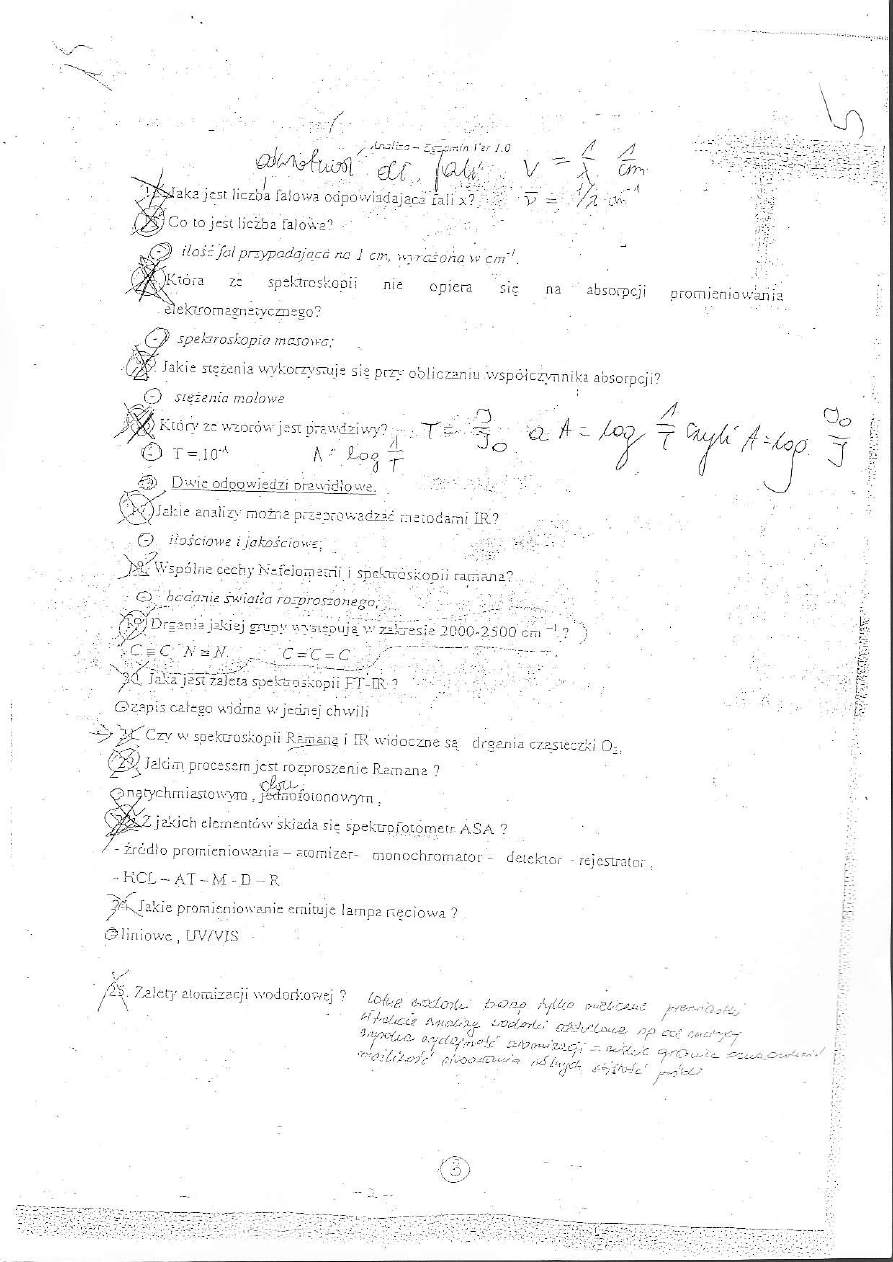 Analiza – Egzamin Ver 1.0
odwrotność dł. fali V = 1/λ 1/cm
Jaka jest liczba falowa odpowiadająca fali x? ν̅ = 1/λ cm⁻¹
Co to jest liczba falowa?
- ilość fal przypadająca na 1 cm, wyrażona w cm⁻¹.
Która ze spektroskopii nie opiera się na absorpcji promieniowania
elektromagnetycznego?
- spektroskopia masowa;
Jakie stężenia wykorzystuje się przy obliczaniu współczynnika absorpcji?
- stężenia molowe
Który ze wzorów jest prawdziwy? T = J/J₀ a A = log 1/T czyli A = log J₀/J
- T = 10⁻ᴬ A = log 1/T
Dwie odpowiedzi prawidłowe.
17. Jakie analizy można przeprowadzać metodami IR?
- ilościowe i jakościowe;
18. Wspólne cechy Nefelometrii i spektroskopii ramana?
- badanie światła rozproszonego;
19. Drgania jakiej grupy występują w zakresie 2000-2500 cm⁻¹ ?
C ≡ C N ≡ N C = C = C
Jaka jest zaleta spektroskopii FT-IR ?
- zapis całego widma w jednej chwili
21. Czy w spektroskopii Ramana i IR widoczne są drgania cząsteczki O₂.
Jakim procesem jest rozproszenie Ramana ?
- natychmiastowym , jednofotonowym , dwu
Z jakich elementów składa się spektrofotometr ASA ?
- źródło promieniowania – atomizer- monochromator - detektor - rejestrator ,
- HCL – AT – M - D – R
24. Jakie promieniowanie emituje lampa rtęciowa ?
- liniowe , UV/VIS
25. Zalety atomizacji wodorkowej ? Lotne wodorki tworzą tylko nieliczne pierwiastki
w trakcie analizy wodorki oddzielane np od matrycy
wysoka wydajność atomizacji = niskie granice oznaczalności
możliwość oznaczania różnych
3
– 2 –